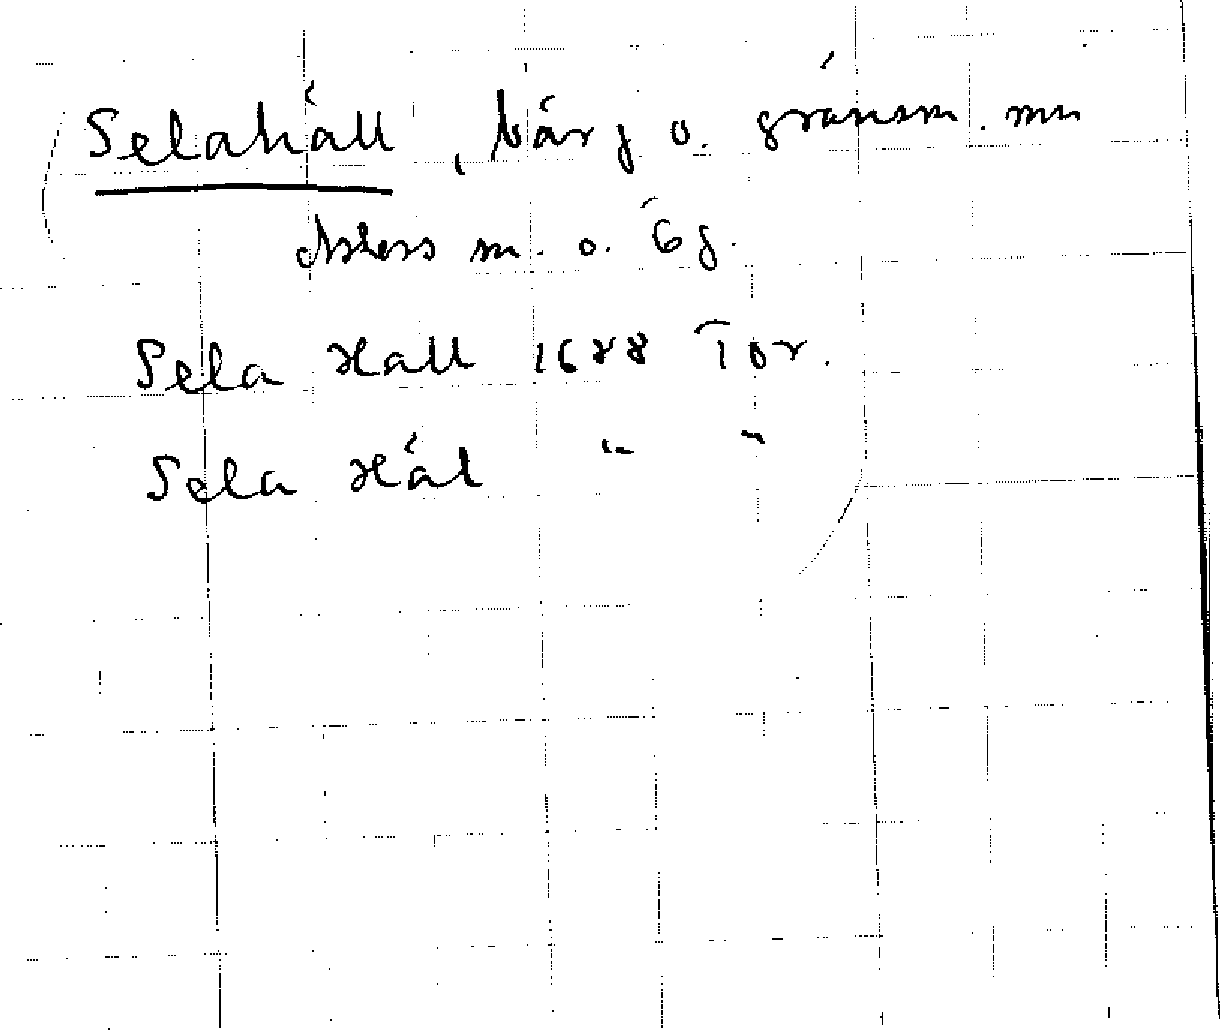 Selahäll, bärg o. gränsm. mn
Askers sn. o. Ög.
Sela Hall 1688 Tor.
Sela Häl " "